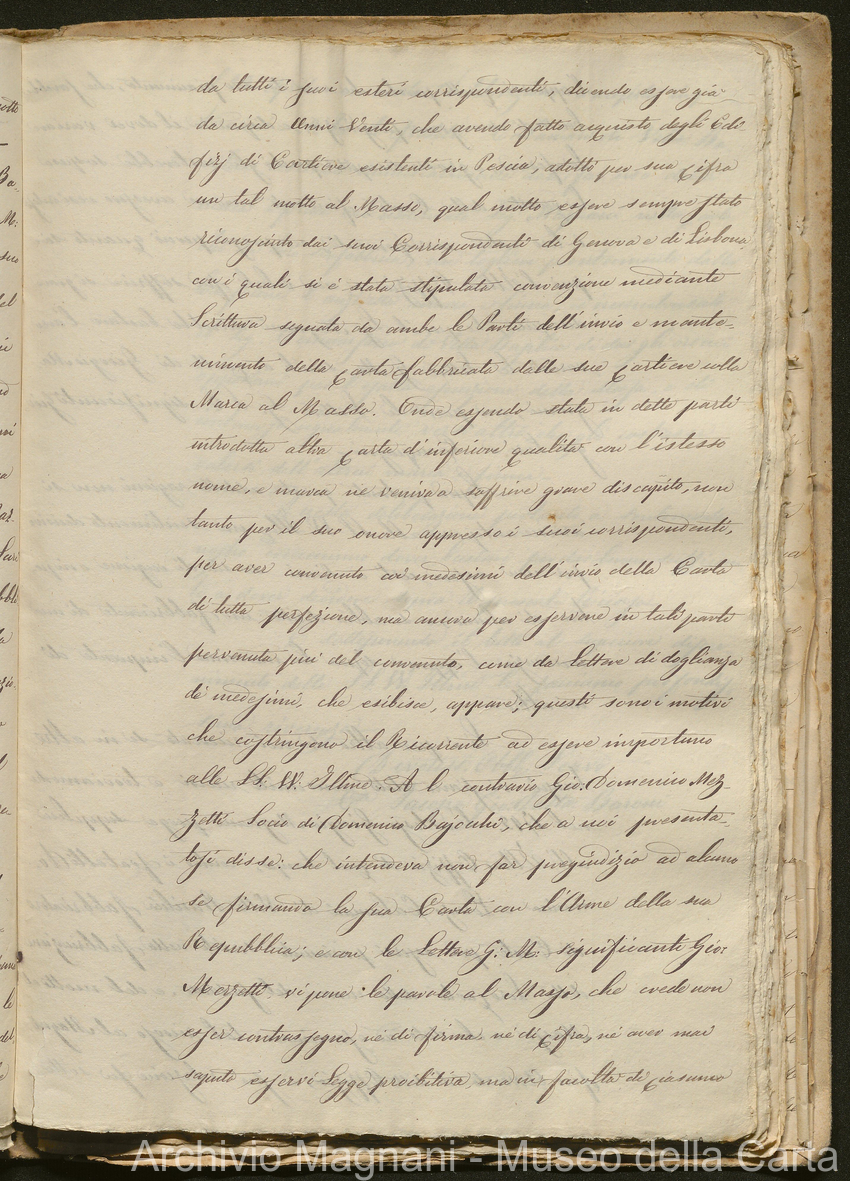 da tutti i suoi esteri corrispondenti, dicendo essere già
da circa Anni Venti, che avendo fatto acquisto degli Edi
fizj di Cartiere esistenti in Pescia, adottò per sua Cifra
un tal motto al Masso, qual motto essere sempre stato
riconosciuto dai suoi Corrispondenti di Genova e di Lisbona
con i quali si è stata stipulata convenzione mediante
Scrittura segnata da ambe le Parti dell'invio e mante-
nimento della Carta fabbricata dalle sue Cartiere colla
Marca al Masso. Onde essendo stata in dette parti
introdotta altra Carta d'inferiore qualità con l'istesso
nome, e marca ne veniva a soffrire grave discapito, non
tanto per il suo onore appresso i suoi corrispondenti,
per aver convenuto coi medesimi dell'invio della Carta
di tutta perfezione, ma ancora per esservene in tali parti
pervenuta più del convenuto, come da lettere di doglianza
dè medesimi, che esibisce, appare; questi sono i motivi
che costringono il Ricorrente ad essere importuno
alle LL: VV: Illme. Al contrario Gio: Domenico Mez-
zetti Socio di Domenico Bajocchi, che a noi presenta-
tosi disse: che intendeva non far pregiudizio ad alcuno
se firmando la sua Carta con l'Arme della sua
Repubblica; e con le Lettere G: M: significanti Gio:
Mezzetti vi pone le parole al Masso, che crede non
esser contrassegno, nè di firma, nè di Cifra, nè aver mai
saputo esservi Legge proibitiva, ma in facoltà di Ciascuno
Archivio Magnani - Museo della Carta